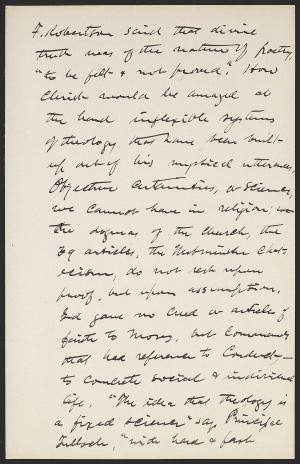 F. Robertson said that divine
truth was of the nature of poetry,
"to be felt & not proved." How
Christ would be amazed at
the hard inflexible systems
of theology that have been built-
up out of his mystical utterances.
Objective certainties, or science,
we cannot have in religion;
the dogmas of the Church, the
39 articles, the Westminster Cat-
echism, do not rest upon
proof, but upon assumption.
God gave no creed or articles of
faith to Moses, but commands
that had reference to conduct—
to concrete social & individual
life. "The idea that theology is
a fixed science" says Principal
Tulloch, "with hard & fast